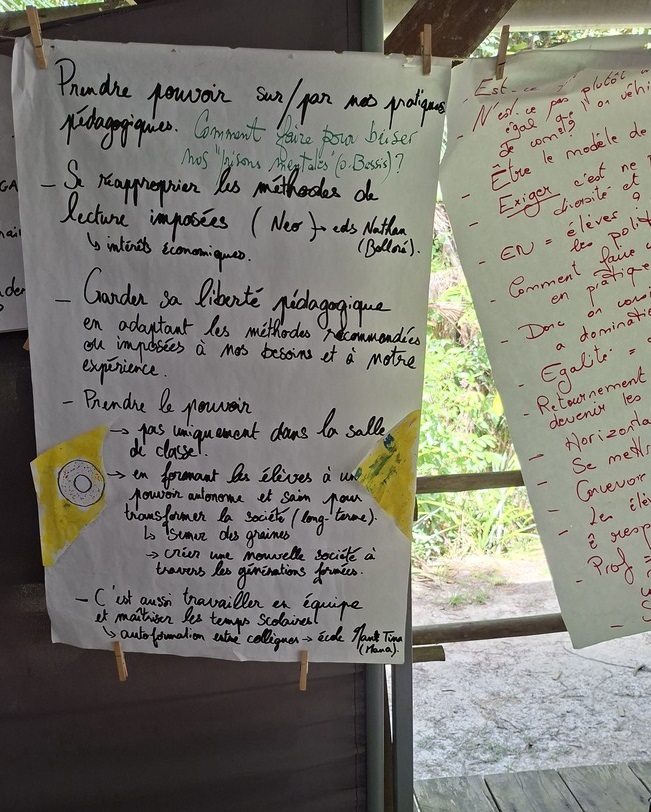 Prendre pouvoir sur/par nos pratiques
pédagogiques. Comment faire pour briser
nos "prisons mentales" (o. Bessis)?
- Se réapproprier les méthodes de
lecture imposées (Neo) → eds Nathan
↳ intérêts économiques. (Bolloré).
- Garder sa liberté pédagogique
en adaptant les méthodes recommandées
ou imposées à nos besoins et à notre
expérience.
- Prendre le pouvoir
→ pas uniquement dans la salle
de classe!
→ en formant les élèves à un
pouvoir autonome et sain pour
transformer la société (long-terme).
↳ semer des graines
→ créer une nouvelle société à
travers les générations formées.
- C'est aussi travailler en équipe
et maîtriser les temps scolaires
↳ autoformation entre collègues → école
(Mana).
- Est-ce plutôt
- N'est-ce pas
égal que l'on véhi
- Être le modèle de
- Exiger c'est ne
diversité et
- EN = élever à
les polit
- Comment faire
en pratique
- Donc on
a dominati
- Egalité =
- Retournement
devenir les
- Horizonta
- Se mett
- Concevoir
- Les élè
ê resp
- Prof =